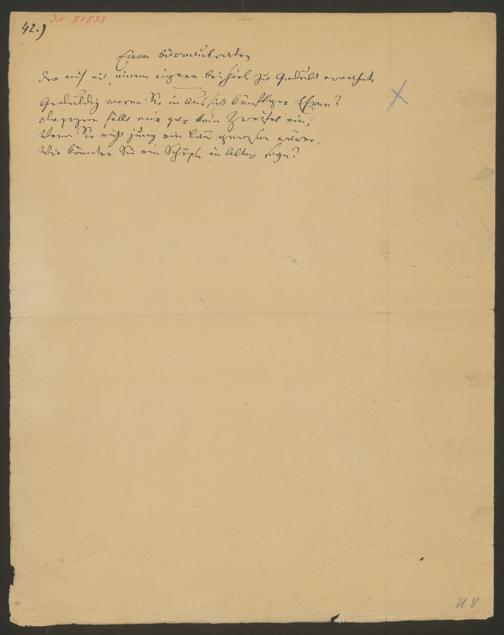 42.)
I.N. 81833
Einem Bürokraten,
der mich mit seinem eignen Beispiel zur Geduld ermahnte
Geduldig waren Sie in Aussicht künft'ger Ehren?
dagegen fällt mir gar kein Zweifel ein,
Wenn Sie nicht jung ein Lamm gewesen wären,
Wie könnten Sie ein Schöps im Alter seyn?